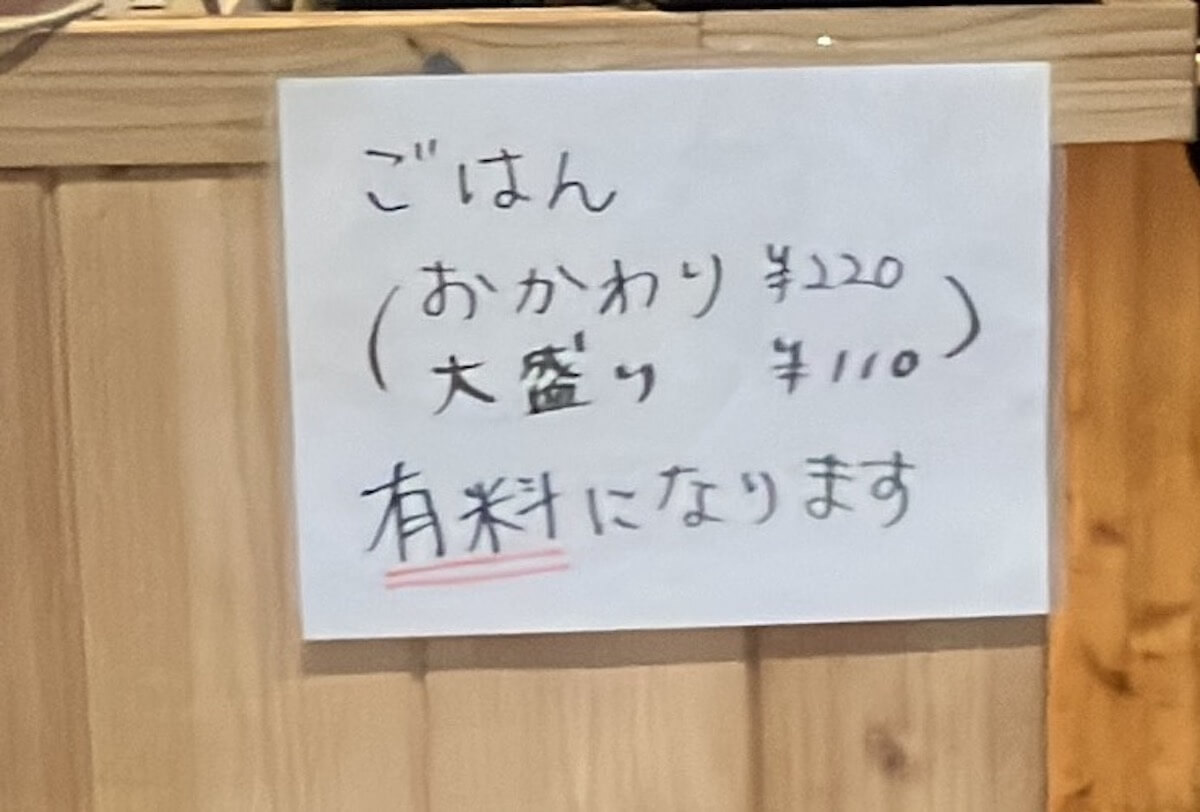 ごはん
(おかわり ¥220
大盛り ¥110)
有料になります